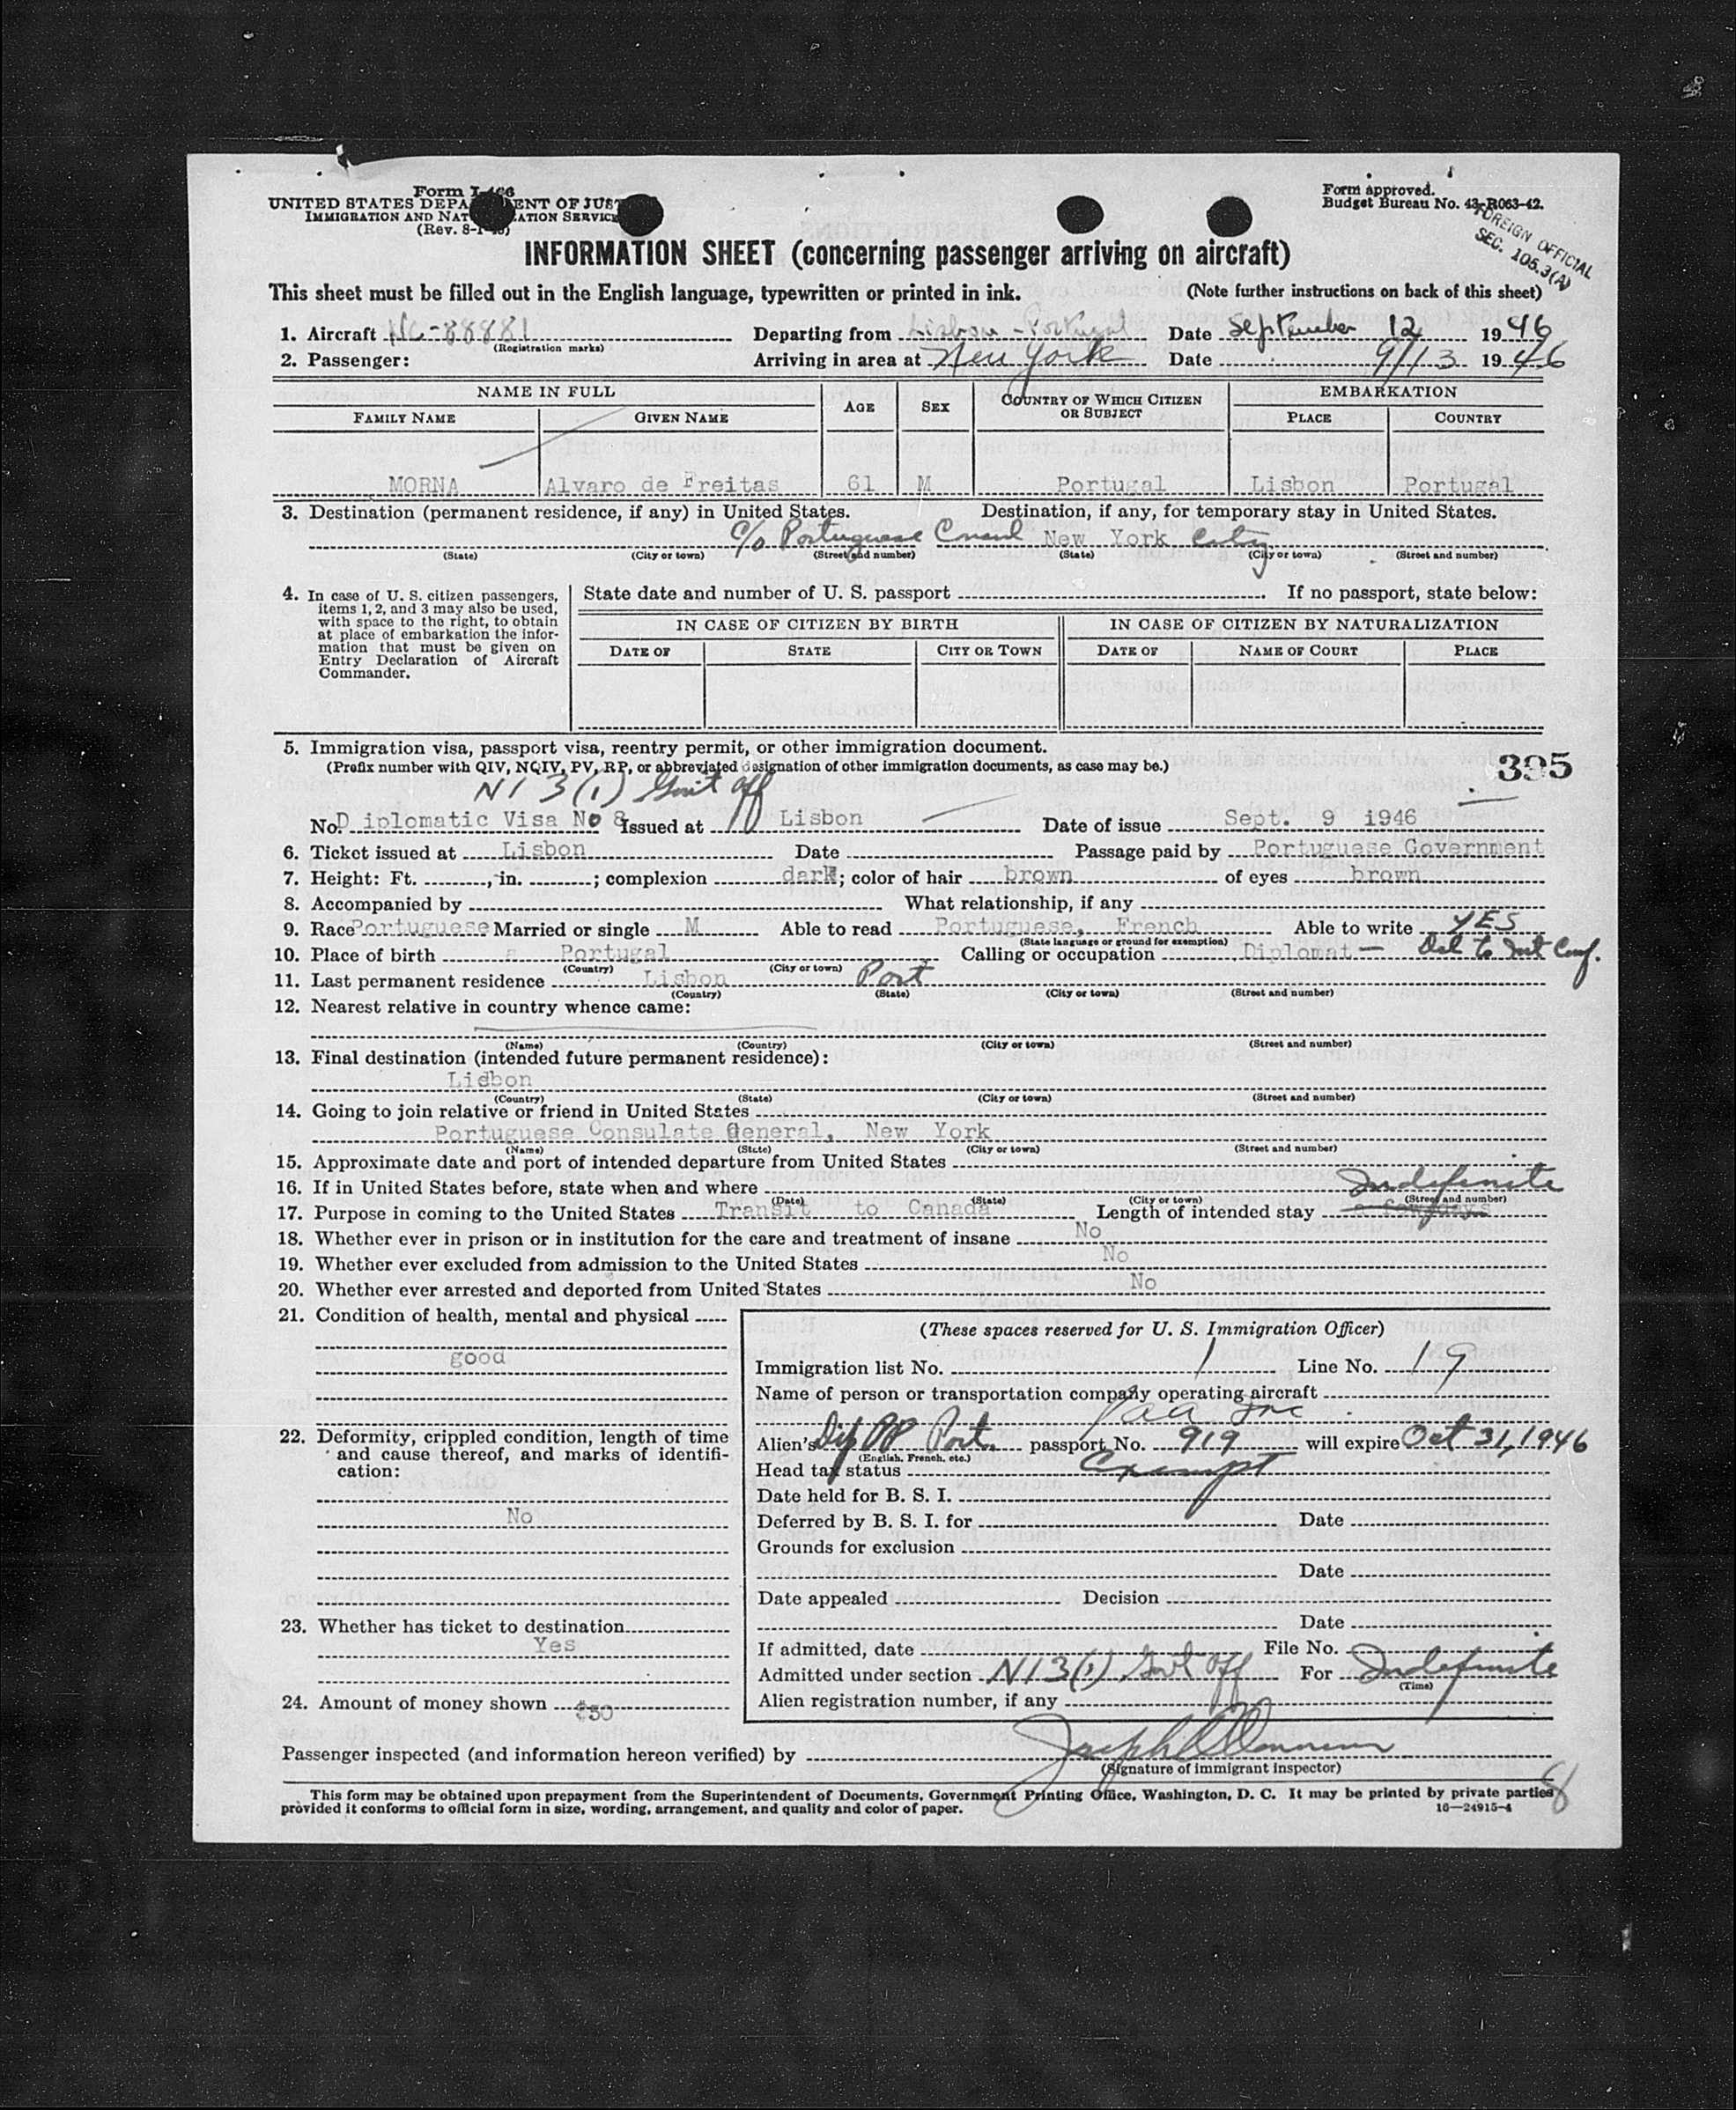 Form I-466
UNITED STATES DEPA ENT OF JUST
IMMIGRATION AND NAT ATION SERVICE
(Rev. 8-1- )
Form approved.
Budget Bureau No. 43-R063-42.
FOREIGN OFFICIAL
SEC. 105.3(A)
INFORMATION SHEET (concerning passenger arriving on aircraft)
This sheet must be filled out in the English language, typewritten or printed in ink. (Note further instructions on back of this sheet)
1. Aircraft NC-88881 Departing from Lisbon - Portugal Date September 12 1946
(Registration marks)
2. Passenger: Arriving in area at New York Date 9/13 1946
NAME IN FULL AGE SEX COUNTRY OF WHICH CITIZEN OR SUBJECT EMBARKATION
FAMILY NAME GIVEN NAME PLACE COUNTRY
MORNA Alvaro de Freitas 61 M Portugal Lisbon Portugal
3. Destination (permanent residence, if any) in United States. Destination, if any, for temporary stay in United States.
c/o Portuguese Consul New York City
(State) (City or town) (Street and number) (State) (City or town) (Street and number)
4. In case of U. S. citizen passengers, items 1, 2, and 3 may also be used, with space to the right, to obtain at place of embarkation the information that must be given on Entry Declaration of Aircraft Commander.
State date and number of U. S. passport If no passport, state below:
IN CASE OF CITIZEN BY BIRTH IN CASE OF CITIZEN BY NATURALIZATION
DATE OF STATE CITY OR TOWN DATE OF NAME OF COURT PLACE
5. Immigration visa, passport visa, reentry permit, or other immigration document.
(Prefix number with QIV, NQIV, PV, RP, or abbreviated designation of other immigration documents, as case may be.)
395
N1 3(1) Gov't Off
No. Diplomatic Visa No 8 Issued at Lisbon Date of issue Sept. 9 1946
6. Ticket issued at Lisbon Date Passage paid by Portuguese Government
7. Height: Ft. , in. ; complexion dark; color of hair brown of eyes brown
8. Accompanied by What relationship, if any
9. Race Portuguese Married or single M Able to read Portuguese, French Able to write YES
(State language or ground for exemption)
10. Place of birth Portugal Calling or occupation Diplomat — Del to Int Conf.
(Country) (City or town)
11. Last permanent residence Lisbon Port
(Country) (State) (City or town) (Street and number)
12. Nearest relative in country whence came:
(Name) (Country) (City or town) (Street and number)
13. Final destination (intended future permanent residence):
Lisbon
(Country) (State) (City or town) (Street and number)
14. Going to join relative or friend in United States
Portuguese Consulate General, New York
(Name) (State) (City or town) (Street and number)
15. Approximate date and port of intended departure from United States
16. If in United States before, state when and where Indefinite
(Date) (State) (City or town) (Street and number)
17. Purpose in coming to the United States Transit to Canada Length of intended stay a few days
18. Whether ever in prison or in institution for the care and treatment of insane No
19. Whether ever excluded from admission to the United States No
20. Whether ever arrested and deported from United States No
21. Condition of health, mental and physical
good
22. Deformity, crippled condition, length of time and cause thereof, and marks of identification:
No
23. Whether has ticket to destination
Yes
24. Amount of money shown $50
(These spaces reserved for U. S. Immigration Officer)
Immigration list No. 1 Line No. 19
Name of person or transportation company operating aircraft
Paa Inc
Alien's Dip PP Port. passport No. 919 will expire Oct 31, 1946
(English, French, etc.)
Head tax status Exempt
Date held for B. S. I.
Deferred by B. S. I. for Date
Grounds for exclusion
Date
Date appealed Decision
Date
If admitted, date File No.
Admitted under section N1 3(1) Govt Off For Indefinite
(Time)
Alien registration number, if any
Passenger inspected (and information hereon verified) by
(Signature of immigrant inspector)
This form may be obtained upon prepayment from the Superintendent of Documents, Government Printing Office, Washington, D. C. It may be printed by private parties
provided it conforms to official form in size, wording, arrangement, and quality and color of paper. 16—24915-4